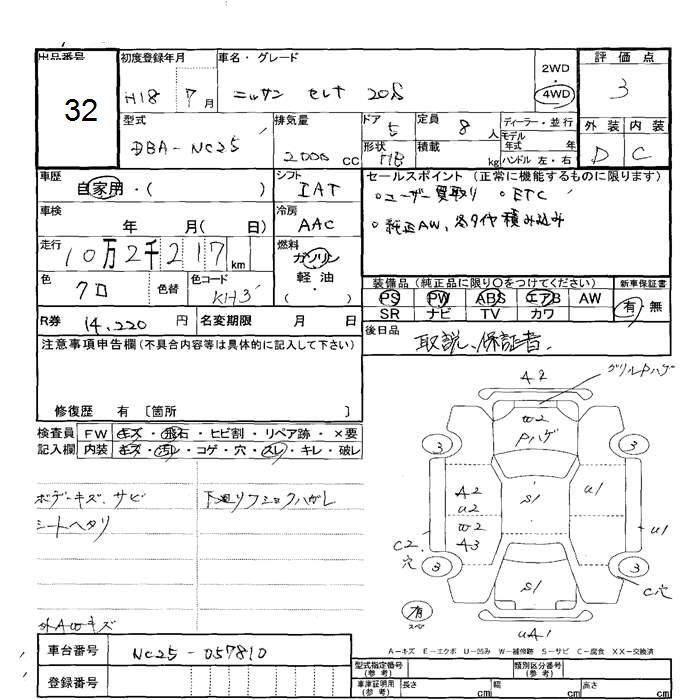 出品番号 初度登録年月 車名・グレード 2WD 4WD 評価点
32 H18 7月 ニッサン セレナ 20S 3
型式 排気量 ドア 定員 ディーラー・並行 外装 内装
DBA-NC25 2000 CC 5 8人 モデル年式 年 D C
形状 積載 kg ハンドル 左・右
車歴 シフト セールスポイント (正常に機能するものに限ります)
自家用・( ) IAT ・ユーザー買取り ・ETC
車検 年 月( 日) 冷房 AAC ・純正AW、冬タイヤ積み込み
走行 10万2千217km 燃料 ガソリン 軽油 ( )
色 クロ 色替 色コード KH3 装備品 (純正品に限り〇をつけてください) 新車保証書
PS PW ABS エアB AW 有・無
SR ナビ TV カワ
R券 14,220円 名変期限 月 日 後日品 取説、保証書.
注意事項申告欄(不具合内容等は具体的に記入して下さい)
修復歴 有 〔箇所 〕
検査員 FW キズ・飛石・ヒビ割・リペア跡・×要
記入欄 内装 キズ・汚レ・コゲ・穴・スレ・キレ・破レ
グリルPハゲ
A2
W2
Pハゲ
3 3
ボデーキズ、サビ 下廻り
シートヘタリ
A2 U2 S1 U1
W2 A3 U1
C2 穴
3 3
S1 C穴
有 スペア
UA1
外AWキズ
A-キズ E-エクボ U-凹み W-補修跡 S-サビ C-腐食 XX-交換済
車台番号 NC25-057810
型式指定番号(参考) 類別区分番号(参考)
登録番号
車庫証明用(参考) 長さ cm 幅 cm 高さ cm